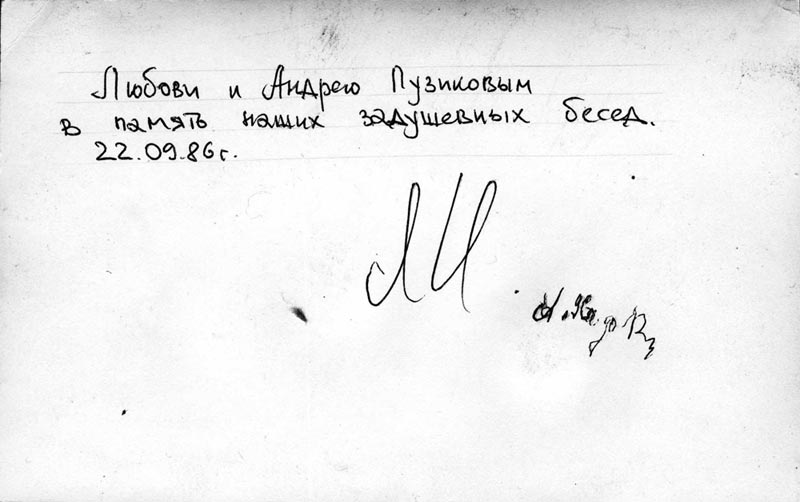 Любови и Андрею Пузиковым
в память наших задушевных бесед.
22.09.86г.